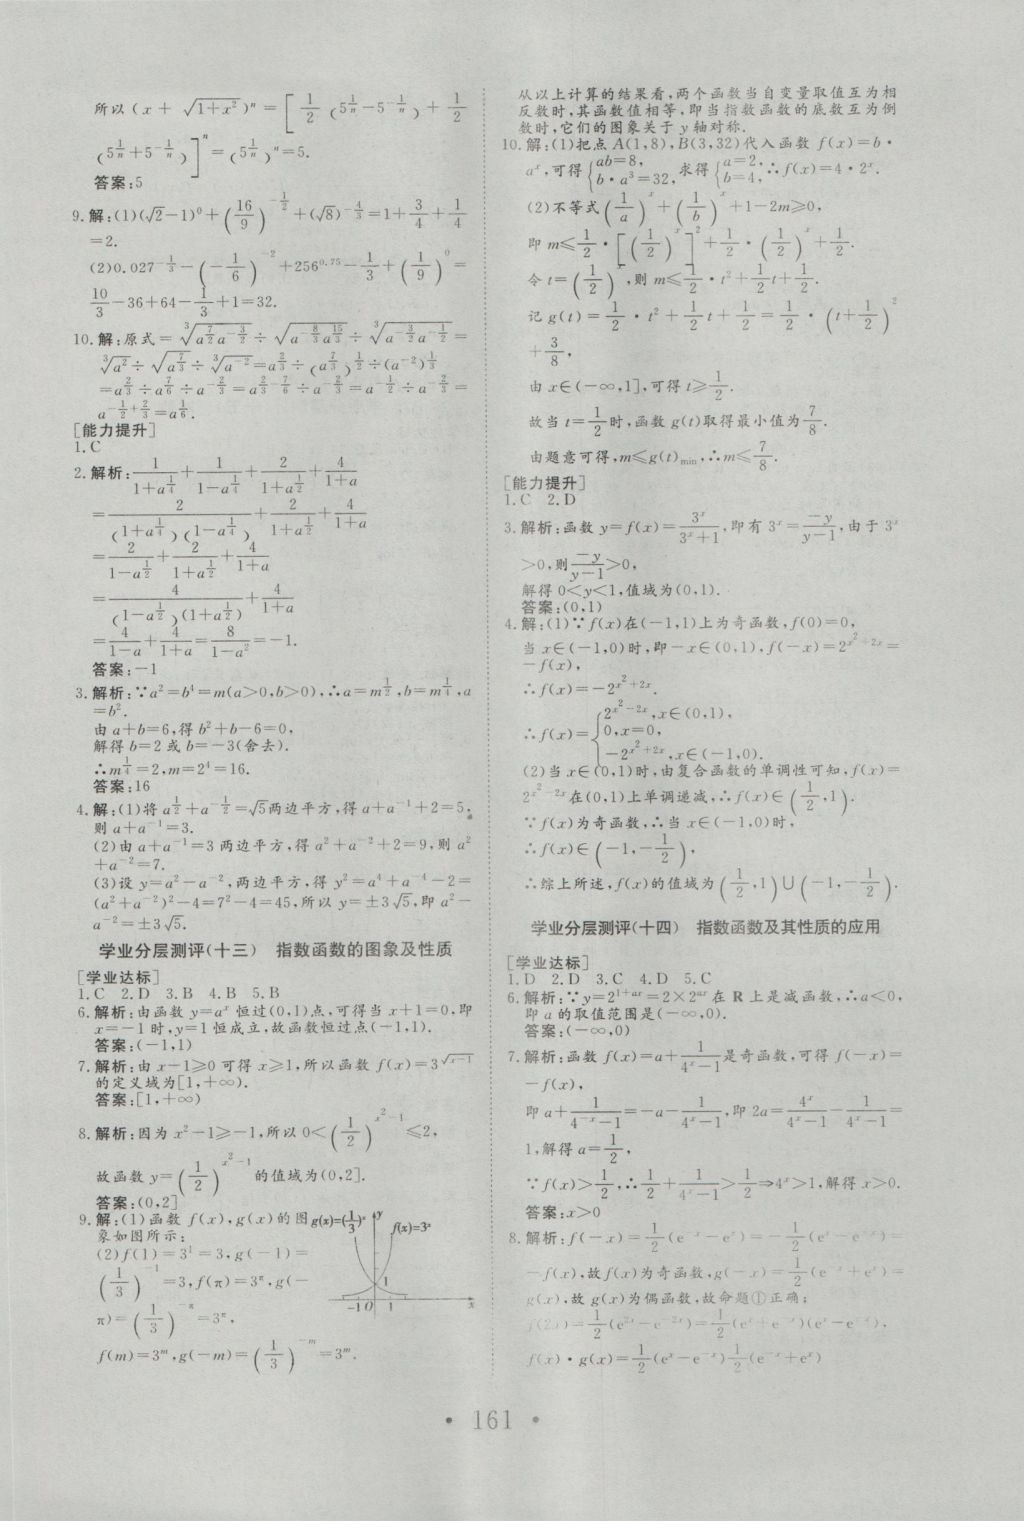 所以(x+√(1+x²))ⁿ=[1/2(5^(1/n)-5^(-1/n))+1/2
(5^(1/n)+5^(-1/n))]ⁿ=(5^(1/n))ⁿ=5.
答案:5
9.解:(1)(√2-1)⁰+(16/9)^(-1/2)+(√8)^(-4/3)=1+3/4+1/4
=2.
(2)0.027^(-1/3)-(-1/6)^(-2)+256^0.75-1/3+(1/9)⁰=
10/3-36+64-1/3+1=32.
10.解:原式=∛(a^(7/2)a^(-3/2))÷√(a^(-8/3)a^(15/3))÷∛(a^(-3/2)a^(-1/2))=
∛(a²)÷√(a^(7/3))÷∛(a^(-2))=a^(2/3)÷(a^(7/3))^(1/2)÷(a^(-2))^(1/3)
=a^(2/3)÷a^(7/6)÷a^(-2/3)=a^(2/3-7/6)÷a^(-2/3)=a^(-1/2)÷a^(-2/3)=
a^(-1/2+2/3)=a^(1/6).
[能力提升]
1.C
2.解析:1/(1+a^(1/4))+1/(1-a^(1/4))+2/(1+a^(1/2))+4/(1+a)
=2/((1+a^(1/4))(1-a^(1/4)))+2/(1+a^(1/2))+4/(1+a)
=2/(1-a^(1/2))+2/(1+a^(1/2))+4/(1+a)
=4/((1-a^(1/2))(1+a^(1/2)))+4/(1+a)
=4/(1-a)+4/(1+a)=8/(1-a²)=-1.
答案:-1
3.解析:∵a²=b⁴=m(a>0,b>0),∴a=m^(1/2),b=m^(1/4),a
=b².
由a+b=6,得b²+b-6=0,
解得b=2或b=-3(舍去).
∴m^(1/4)=2,m=2⁴=16.
答案:16
4.解:(1)将a^(1/2)+a^(-1/2)=√5两边平方,得a+a⁻¹+2=5,
则a+a⁻¹=3.
(2)由a+a⁻¹=3两边平方,得a²+a⁻²+2=9,则a²
+a⁻²=7.
(3)设y=a²-a⁻²,两边平方,得y²=a⁴+a⁻⁴-2=
(a²+a⁻²)²-4=7²-4=45,所以y=±3√5,即a²-
a⁻²=±3√5.
学业分层测评(十三) 指数函数的图象及性质
[学业达标]
1.C 2.D 3.B 4.B 5.B
6.解析:由函数y=aˣ恒过(0,1)点,可得当x+1=0,即
x=-1时,y=1恒成立,故函数恒过点(-1,1).
答案:(-1,1)
7.解析:由x-1≥0可得x≥1,所以函数f(x)=3^√(x-1)
的定义域为[1,+∞).
答案:[1,+∞)
8.解析:因为x²-1≥-1,所以0<(1/2)^(x²-1)≤2,
故函数y=(1/2)^(x²-1)的值域为(0,2].
答案:(0,2]
9.解:(1)函数f(x),g(x)的图
象如图所示:
g(x)=(1/3)ˣ y f(x)=3ˣ
1
-1 O 1 x
(2)f(1)=3¹=3,g(-1)=
(1/3)⁻¹=3,f(π)=3^π,g(-
π)=(1/3)^(-π)=3^π,
f(m)=3ᵐ,g(-m)=(1/3)^(-m)=3ᵐ.
从以上计算的结果看,两个函数当自变量取值互为相
反数时,其函数值相等,即当指数函数的底数互为倒
数时,它们的图象关于y轴对称.
10.解:(1)把点A(1,8),B(3,32)代入函数f(x)=b·
aˣ,可得{ab=8, b·a³=32,求得{a=2, b=4,∴f(x)=4·2ˣ.
(2)不等式(1/a)ˣ+(1/b)ˣ+1-2m≥0,
即m≤1/2·[(1/2)ˣ]²+1/2·(1/2)ˣ+1/2.
令t=(1/2)ˣ,则m≤1/2·t²+1/2t+1/2.
记g(t)=1/2·t²+1/2t+1/2=1/2·(t+1/2)²
+3/8,
由x∈(-∞,1],可得t≥1/2.
故当t=1/2时,函数g(t)取得最小值为7/8.
由题意可得,m≤g(t)min,∴m≤7/8.
[能力提升]
1.C 2.D
3.解析:函数y=f(x)=3ˣ/(3ˣ+1),即有3ˣ=-y/(y-1),由于3ˣ
>0,则-y/(y-1)>0,
解得0<y<1,值域为(0,1).
答案:(0,1)
4.解:(1)∵f(x)在(-1,1)上为奇函数,f(0)=0,
当x∈(-1,0)时,即-x∈(0,1),f(-x)=2^(x²+2x)=
-f(x),
∴f(x)=-2^(x²+2x).
∴f(x)={2^(x²-2x),x∈(0,1), 0,x=0, -2^(x²+2x),x∈(-1,0).
(2)当x∈(0,1)时,由复合函数的单调性可知,f(x)=
2^(x²-2x)在(0,1)上单调递减,∴f(x)∈(1/2,1).
∵f(x)为奇函数,∴当x∈(-1,0)时,
∴f(x)∈(-1,-1/2),
∴综上所述,f(x)的值域为(1/2,1)∪(-1,-1/2).
学业分层测评(十四) 指数函数及其性质的应用
[学业达标]
1.D 2.D 3.C 4.D 5.C
6.解析:∵y=2^(1+ax)=2×2^(ax)在R上是减函数,∴a<0,
即a的取值范围是(-∞,0).
答案:(-∞,0)
7.解析:函数f(x)=a+1/(4ˣ-1)是奇函数,可得f(-x)=
-f(x),
即a+1/(4⁻ˣ-1)=-a-1/(4ˣ-1),即2a=4ˣ/(4ˣ-1)-1/(4ˣ-1)=
1,解得a=1/2,
∵f(x)>1/2,∴1/2+1/(4ˣ-1)>1/2⇒4ˣ>1,解得x>0.
答案:x>0
8.解析:f(-x)=1/2(e⁻ˣ-eˣ)=-1/2(eˣ-e⁻ˣ)=
-f(x),故f(x)为奇函数,g(-x)=1/2(e⁻ˣ+eˣ)=
g(x),故g(x)为偶函数,故命题①正确;
f(2x)=1/2(e²ˣ-e⁻²ˣ)=1/2(eˣ+e⁻ˣ)(eˣ-e⁻ˣ),
f(x)·g(x)=1/2(eˣ-e⁻ˣ)1/2(e⁻ˣ+eˣ)
· 161 ·